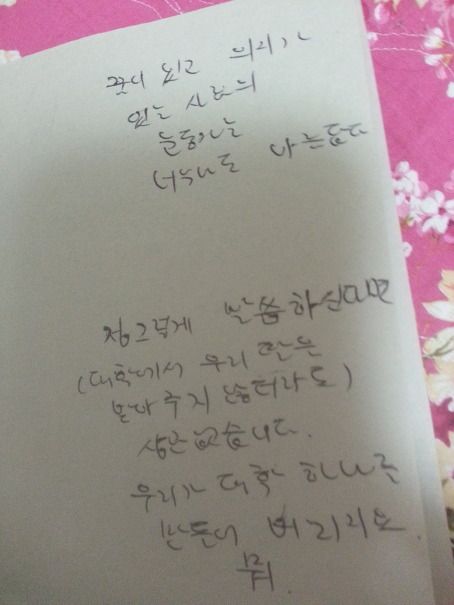 꿈이 있고 의리가
있는 사람의
눈동자는
너무나도 아름답다
정 그렇게 말씀하신다면
(대학에서 우리 만은
받아 주지 않더라도)
상관없습니다.
우리가 대학 하나를
만들어 버리지요.
뭐.